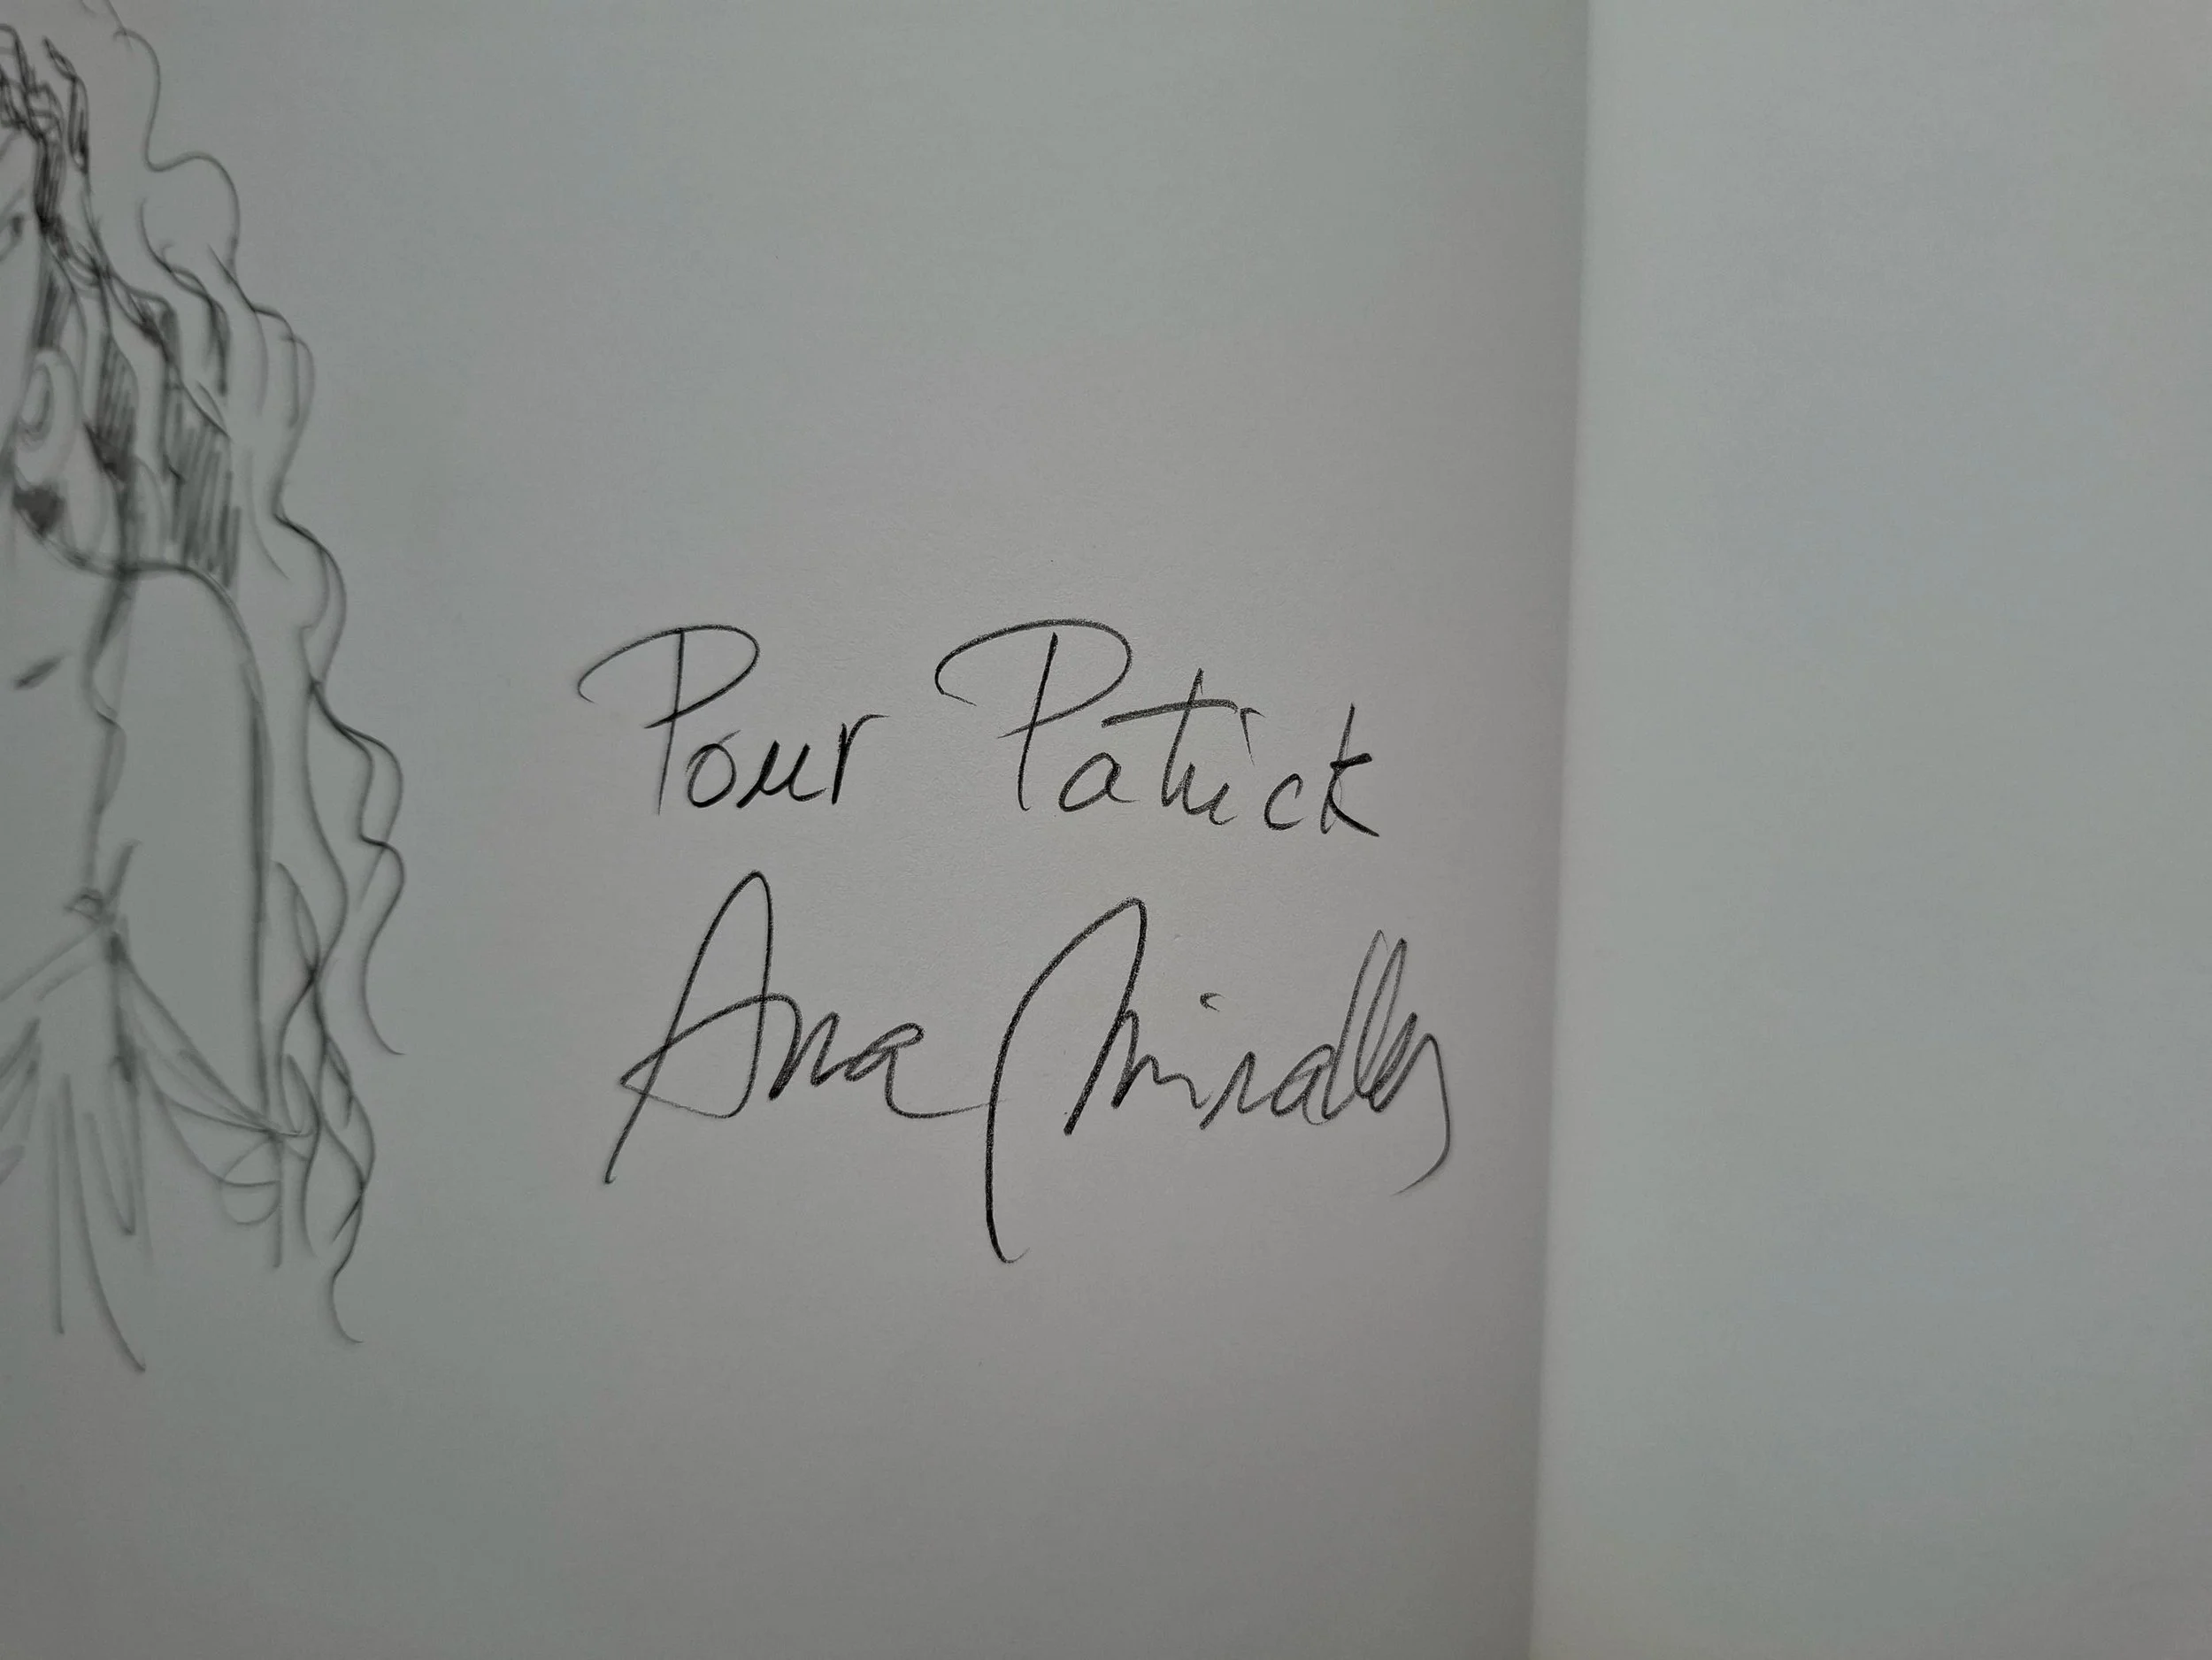 Pour Patrick
Ana Miralles